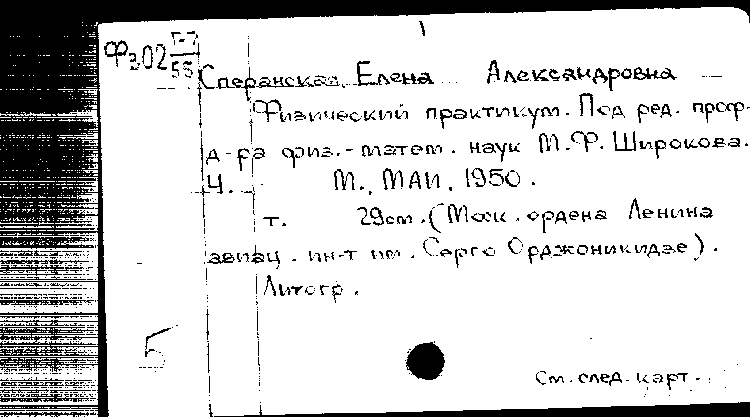 1
Фз02 Г-7/55
Сперанская Елена Александровна
Физический практикум. Под ред. проф.
д-ра физ.-матем. наук М.Ф. Широкова.
Ч. М., МАИ, 1950.
т. 29см. (Моск. ордена Ленина
авиац. ин-т им. Серго Орджоникидзе).
Литогр.
5
См. след. карт.